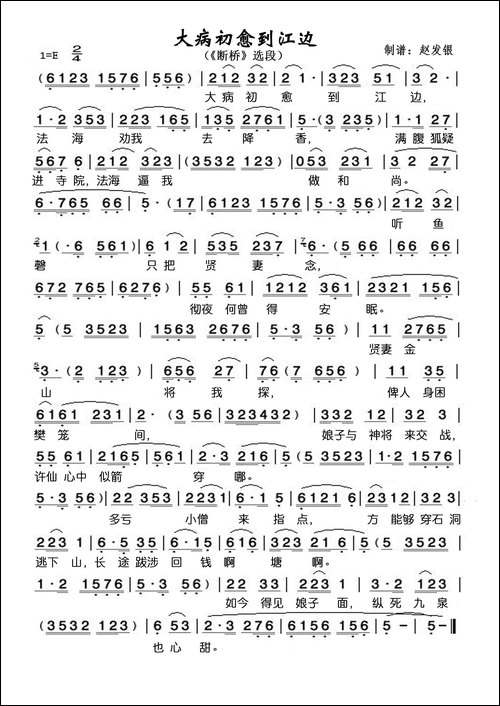 大病初愈到江边
1=E 2/4 （《断桥》选段） 制谱：赵发银
(6123 1576 | 556) | 212 32 | 2 1· | 323 51 | 3 2 |
大病 初 愈 到 江 边，
1·2 353 | 223 165 | 135 2761 | 5·(3 235) | 1·1 27 |
法 海 劝我 去 降 香， 满腹狐疑
567 6 | 212 323 | (3532 123) | 053 231 | 3 2 27 |
进寺院，法海 逼我 做 和 尚。
6·765 66 | 5·(17 | 6123 1576 | 5·3 56) | 212 32 |
听 鱼
1(·6 561) | 6 1 2 | 535 237 | 6·(5 66 | 66 66 |
磬 只把 贤 妻 念，
672 765 | 6276) | 55 61 | 1212 361 | 2321 156 |
彻夜 何曾 得 安 眠。
5 (5 3523 | 1563 2676 | 5·3 56) | 11 2765 |
贤妻 金
3·(2 123) | 656 27 | 765 6 | 11 35 |
山 将 我 探， 俾人 身困
6161 231 | 2·(3 56 | 323432) | 332 12 | 3 3 2 |
樊 笼 间， 娘子与 神将 来交 战，
55 61 | 2165 561 | 2·3 216 | 5·(1 23 | 5 5 3523 |
许仙 心中 似箭 穿 哪。
5·3 56) | 22 353 | 2231 | 6·1 5 | 6121 6 | 232 03 |
多亏 小僧 来 指 点， 方 能够 穿石 洞
223 1 | 323 5 | 61 23 | 6 5 3 | 1 2 | 5 (5 3523 |
逃下 山，长 途 跋涉 回 钱 啊 塘 啊。
1·2 1576 | 5·3 56) | 22 33 | 223 1 | 3·3 123 |
如今 得见 娘子 面，纵 死 九泉
(3532 123) | 6 53 | 2·3 276 | 6156 156 | 5 － | 5－‖
也 心 甜。